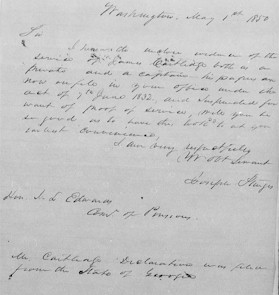 Washington, May 1st 1850
Sir
I have the making evidence of the
service of James Cartledge both as a
private and a captain. his papers are
now on file in your office under the
act of 7th June 1832, and suspended for
want of proof of service, Will you be
so good as to have the at your
earliest convenience,
I am very respectfully
Yr Obt Servant
Joseph
Hon. J L Edwards
Comr of Pensions
Mr Cartledge Declaration was
from the State of Georgia